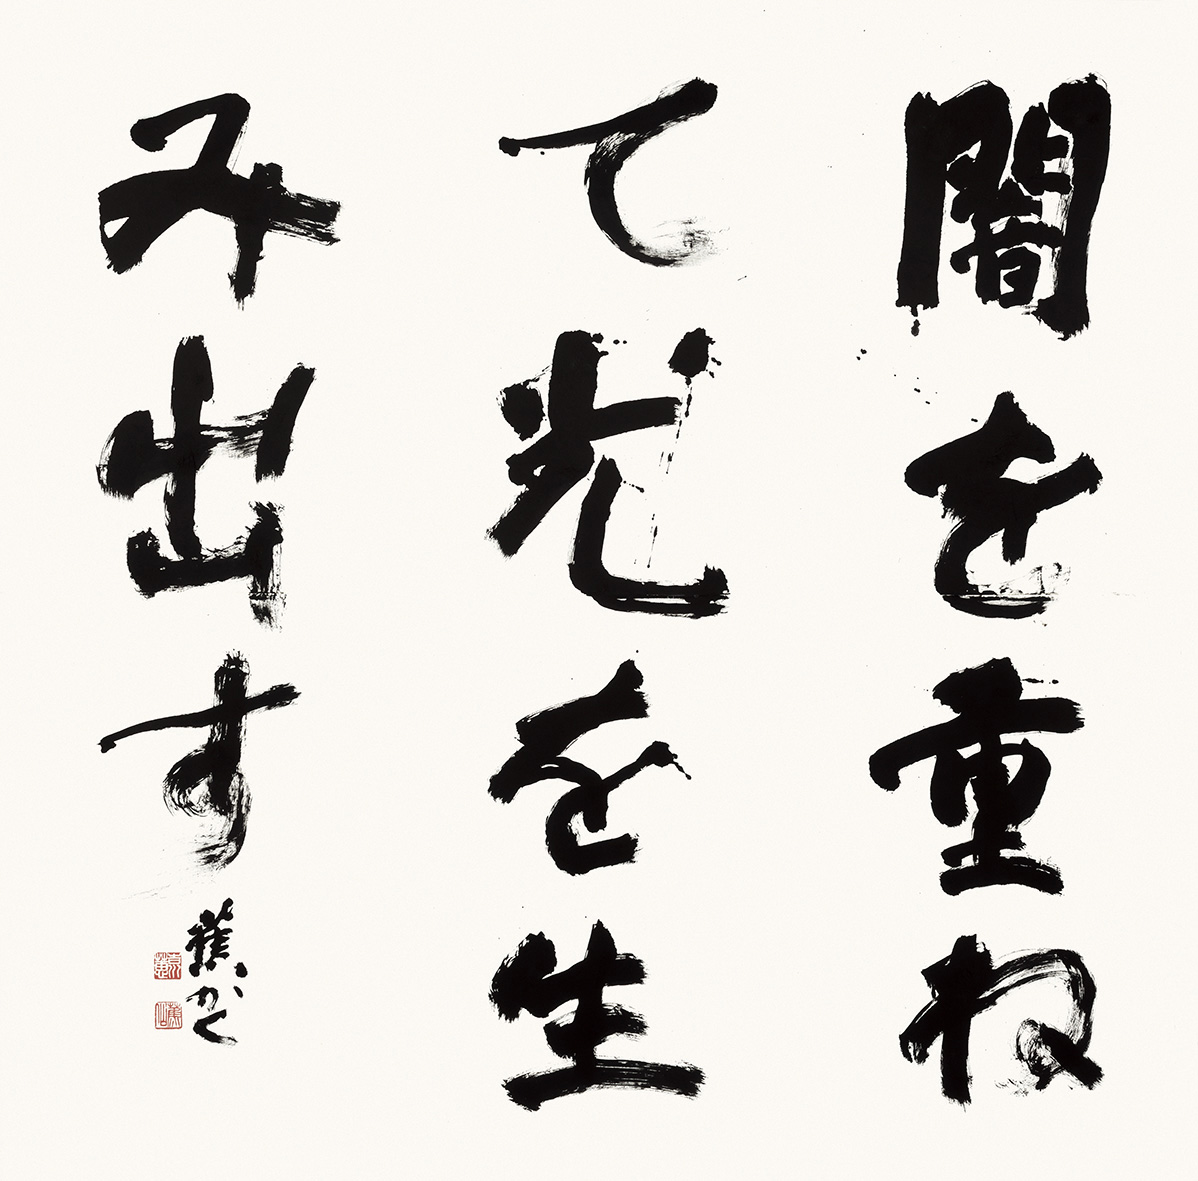 闇を重ね
て光を生
み出す
蕉かく